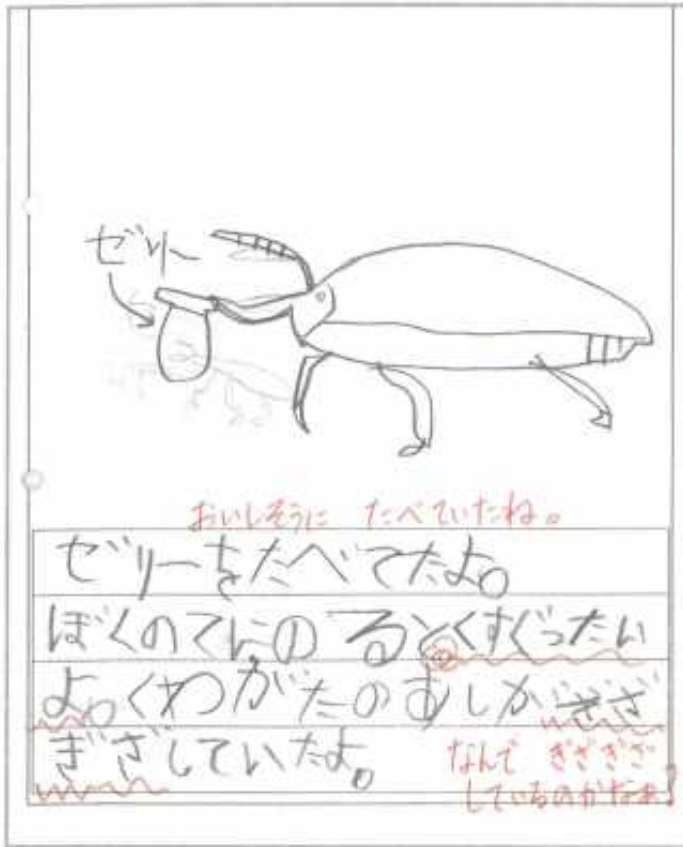 ゼリー
おいしそうに たべていたね。
ゼリーをたべてたよ。
ぼくのてにのるとくすぐったい
よ。くわがたのむしがぎざ
ぎざしていたよ。
なんで ぎざぎざ
しているのかなぁ？